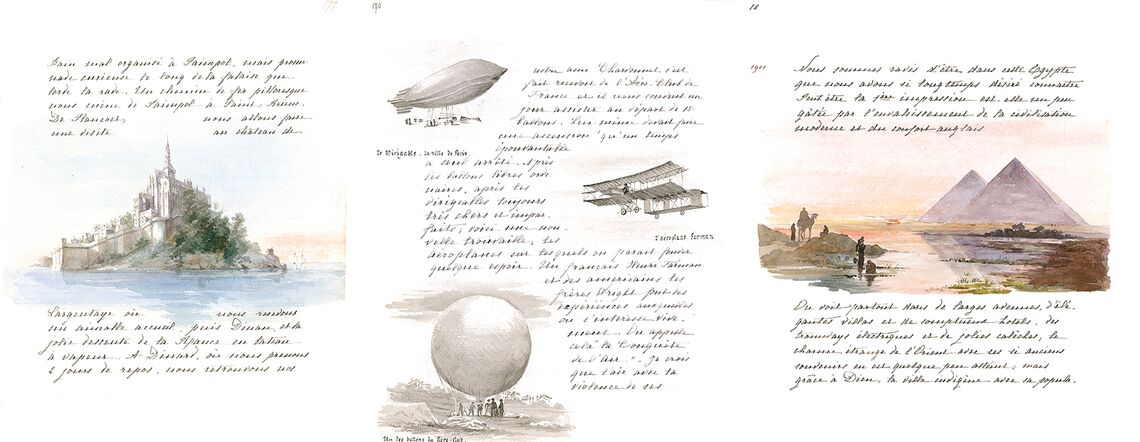 197
Train mal organisé à Paimpol, mais prome
nade curieuse le long de la falaise qui
borde la rade. Un chemin de fer pittoresque
nous mène de Paimpol à Saint-Brieuc.
De Plancoët, nous allons faire
une visite au château de
Largentaye où nous recevons
un aimable accueil, puis Dinan, et la
jolie descente de la Rance en bateau
à vapeur. A Dinard, où nous prenons
2 jours de repos, nous retrouvons nos
170
notre ami Chardonnet s'est
fait recevoir de l'Aéro-Club de
France et il nous conduit un
jour assister au départ de 12
ballons. Lui même devait faire
une ascension qu'un temps
épouvantable
Le Dirigeable. la ville de Paris.
a seul arrêté. Après
les ballons libres ordi
naires, après les
dirigeables toujours
très chers et impar-
faits, voici une nou-
velle trouvaille, les
aéroplanes sur lesquels on paraît fonder
quelque espoir. Un français Henri Farman
et des américains les
frères Wright font des
expériences auxquelles
on s'intéresse vive-
ment. On appelle
cela "la Conquête
de l'air". Je crois
que l'air avec la
violence de ses
L'aéroplane Farman
Un des ballons du Aéro-Club.
18
1901
Nous sommes ravis d'être dans cette Egypte
que nous avons si longtemps désiré connaître
Peut être la 1ère impression est-elle un peu
gâtée par l'envahissement de la civilisation
moderne et du confort anglais
On voit partout dans de larges avenues, d'élé-
gantes villas et de somptueux hotels, des
tramways électriques et de jolies calèches, le
charme étrange de l'Orient avec ses si anciens
souvenirs en est quelque peu atteint, mais
grâce à Dieu, la ville indigène avec sa popula-